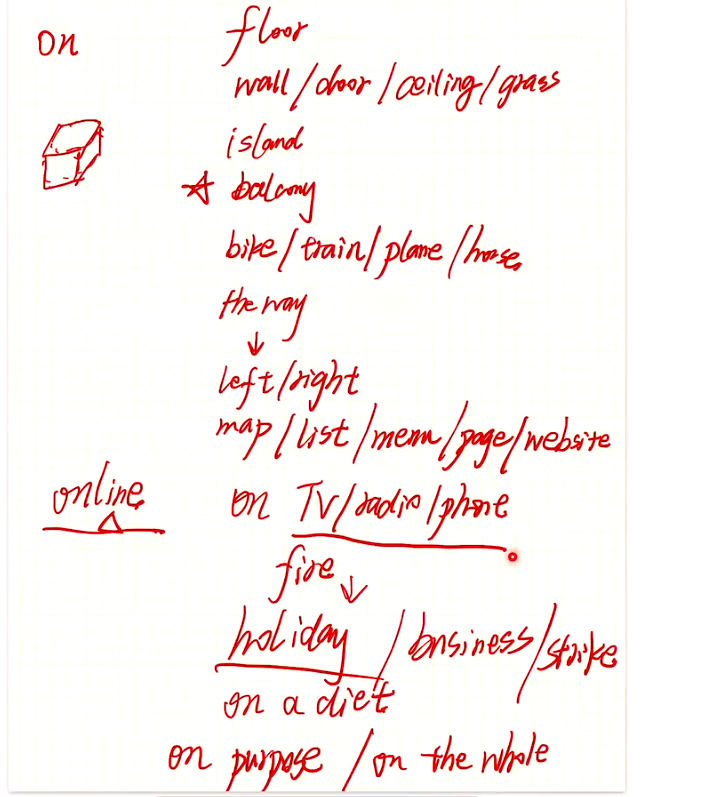 on
floor
wall/door/ceiling/grass
island
☆ balcony
bike/train/plane/horse
the way
↓
left/right
map/list/menu/page/website
online
on TV/radio/phone
fire ↓
holiday /business/strike
on a diet
on purpose /on the whole